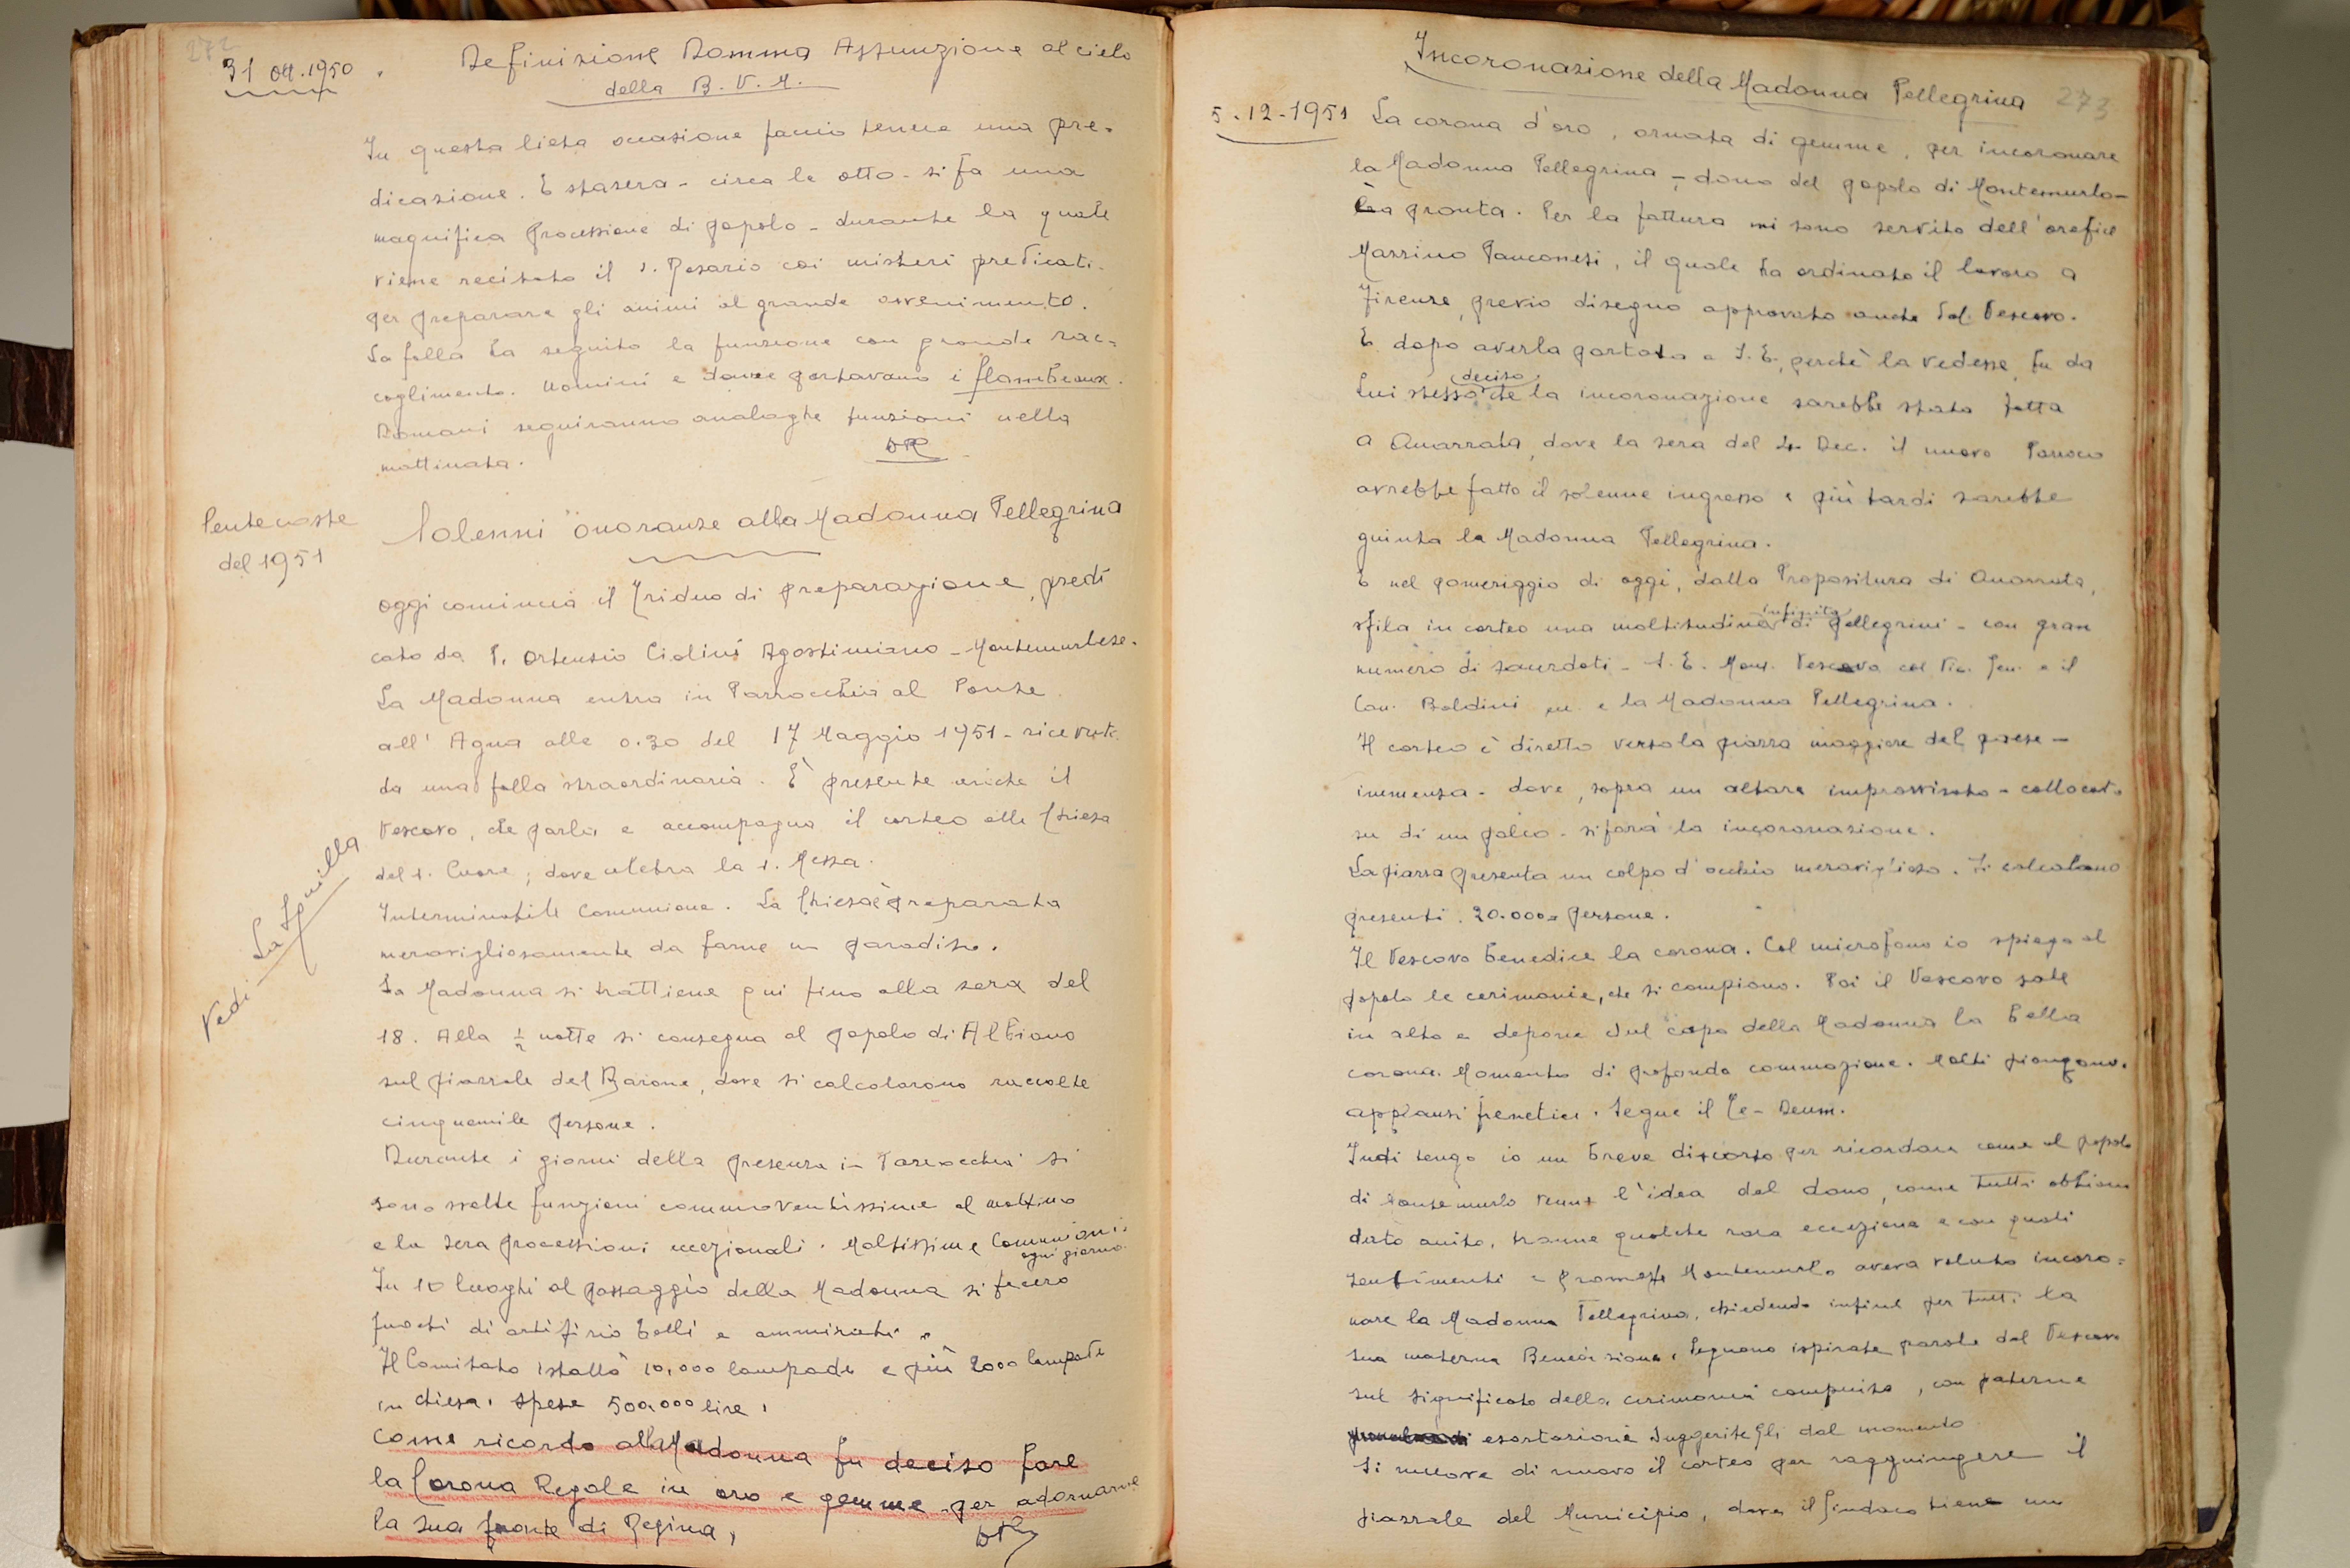 272
31 Ott. 1950. Definizione Domma Assunzione al cielo
della B. V. M.
In questa lieta occasione faccio tenere una pre-
dicazione. E stasera - circa le otto - si fa una
magnifica processione di popolo - durante la quale
viene recitato il S. Rosario coi misteri predicati.
per preparare gli animi al grande avvenimento.
La folla ha seguito la funzione con grande rac-
coglimento. Uomini e donne portavano i flambeaux.
Domani seguiranno analoghe funzioni nella
mattinata.
Pentecoste
del 1951
Solenni onoranze alla Madonna Pellegrina
Oggi comincia il Triduo di preparazione, predi
cato da P. Ortensio Ciolini Agostiniano - Montemurlese.
La Madonna entra in Parrocchia al Ponte
all' Agna alle 0.30 del 17 Maggio 1951 - ricevuta
da una folla straordinaria. È presente anche il
Vescovo, che parla e accompagna il corteo alla Chiesa
del S. Cuore, dove celebra la S. Messa.
Interminabile Comunione. La Chiesa è preparata
meravigliosamente da farne un paradiso.
Vedi La Squilla
La Madonna si trattiene qui fino alla sera del
18. Alla ½ notte si consegna al popolo di Albiano
sul piazzale del Barone, dove si calcolarono raccolte
cinquemila persone.
Durante i giorni della presenza in Parrocchia si
sono svolte funzioni commoventissime al mattino
e la sera processioni eccezionali. Moltissime Comunioni
ogni giorno.
In 10 luoghi al passaggio della Madonna si fecero
fuochi di artifizio belli e ammirati.
Il Comitato istallò 10,000 lampade e più 2000 lampade
in chiesa. Spese 500.000 lire.
Come ricordo alla Madonna fu deciso fare
la Corona Regale in oro e gemme per adornarne
la sua fronte di Regina,
Incoronazione della Madonna Pellegrina
273
5.12.1951 La corona d'oro, ornata di gemme, per incoronare
la Madonna Pellegrina - dono del popolo di Montemurlo -
era pronta. Per la fattura mi sono servito dell'orefice
Panconesi, il quale ha ordinato il lavoro a
Firenze, previo disegno approvato anche dal Vescovo.
E dopo averla portata a S. E. perchè la vedesse, fu da
deciso
Lui stesso che la incoronazione sarebbe stata fatta
a Quarrata, dove la sera del Dec. il nuovo Parroco
avrebbe fatto il solenne ingresso e più tardi sarebbe
giunta la Madonna Pellegrina.
E nel pomeriggio di oggi, dalla Propositura di Quarrata,
infinita
sfila in corteo una moltitudine di pellegrini - con gran
numero di sacerdoti - S. E. Mons. Vescovo col Vic. Gen. e il
Can. Boldini e la Madonna Pellegrina.
Il corteo è diretto verso la piazza maggiore del paese -
immensa - dove, sopra un altare improvvisato - collocato
su di un palco - si farà la incoronazione.
La piazza presenta un colpo d'occhio meraviglioso. Si calcolano
presenti 20.000 persone.
Il Vescovo benedice la corona. Col microfono io spiego al
popolo le cerimonie, che si compiono. Poi il Vescovo sale
in alto e depone sul capo della Madonna la bella
corona. Momento di profonda commozione. Molti piangono.
applausi frenetici. Segue il Te-Deum.
Indi tengo io un breve discorso per ricordare come al popolo
di Montemurlo venne l'idea del dono, come tutti abbiano
dato aiuto, tranne qualche rara eccezione e con quali
sentimenti e promesse Montemurlo aveva voluto incoro-
nare la Madonna Pellegrina, chiedendo infine per tutti la
sua materna Benedizione. Seguono ispirate parole del Vescovo
sul significato della cerimonia compiuta, con paterne
esortazioni suggeritegli dal momento
Si muove di nuovo il corteo per raggiungere il
piazzale del Municipio, dove il Sindaco tiene un